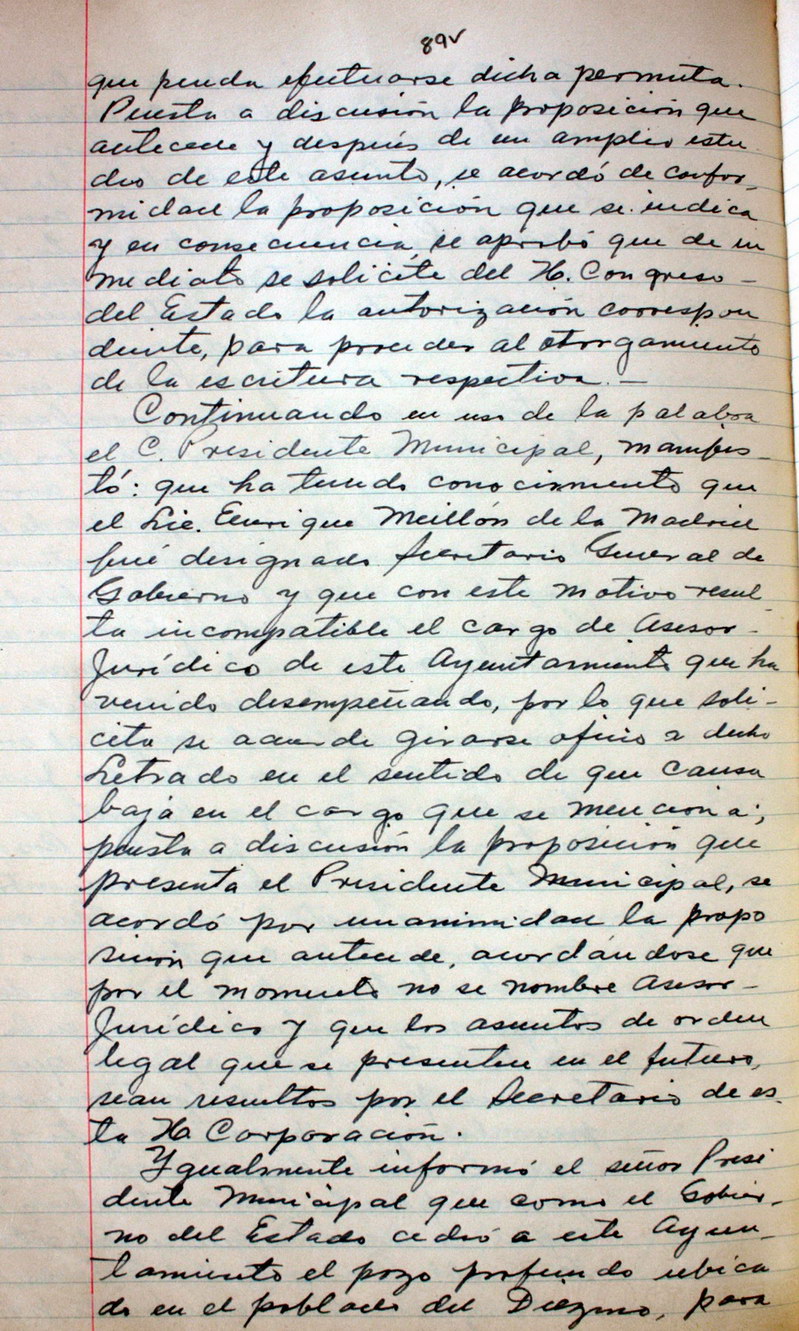 89v
que pueda efectuarse dicha permuta.
Puesta a discusión la proposición que
antecede y después de un amplio estu-
dio de este asunto, se acordó de confor-
midad la proposición que se indica
y en consecuencia, se aprobó que de in
mediato se solicite del H. Congreso -
del Estado la autorización correspon
diente, para proceder al otorgamiento
de la escritura respectiva. -
Continuando en uso de la palabra
el C. Presidente Municipal, manifes-
tó: que ha tenido conocimiento que
el Lic. Enrique Meillón de la Madrid
fué designado Secretario General de
Gobierno y que con este motivo resul-
ta incompatible el cargo de Asesor -
Jurídico de este Ayuntamiento que ha
venido desempeñando, por lo que soli-
cita se acuerde girarse oficio a dicho
Letrado en el sentido de que causa
baja en el cargo que se menciona;
puesta a discusión la proposición que
presenta el Presidente Municipal, se
acordó por unanimidad la propo
sición que antecede, acordándose que
por el momento no se nombre Asesor -
Jurídico y que los asuntos de orden
legal que se presenten en el futuro,
sean resueltos por el Secretario de es-
ta H. Corporación.
Ygualmente informó el señor Presi
dente Municipal que como el Gobier-
no del Estado cedió a este Ayun-
tamiento el pozo profundo ubica
do en el poblado del Diezmo, para